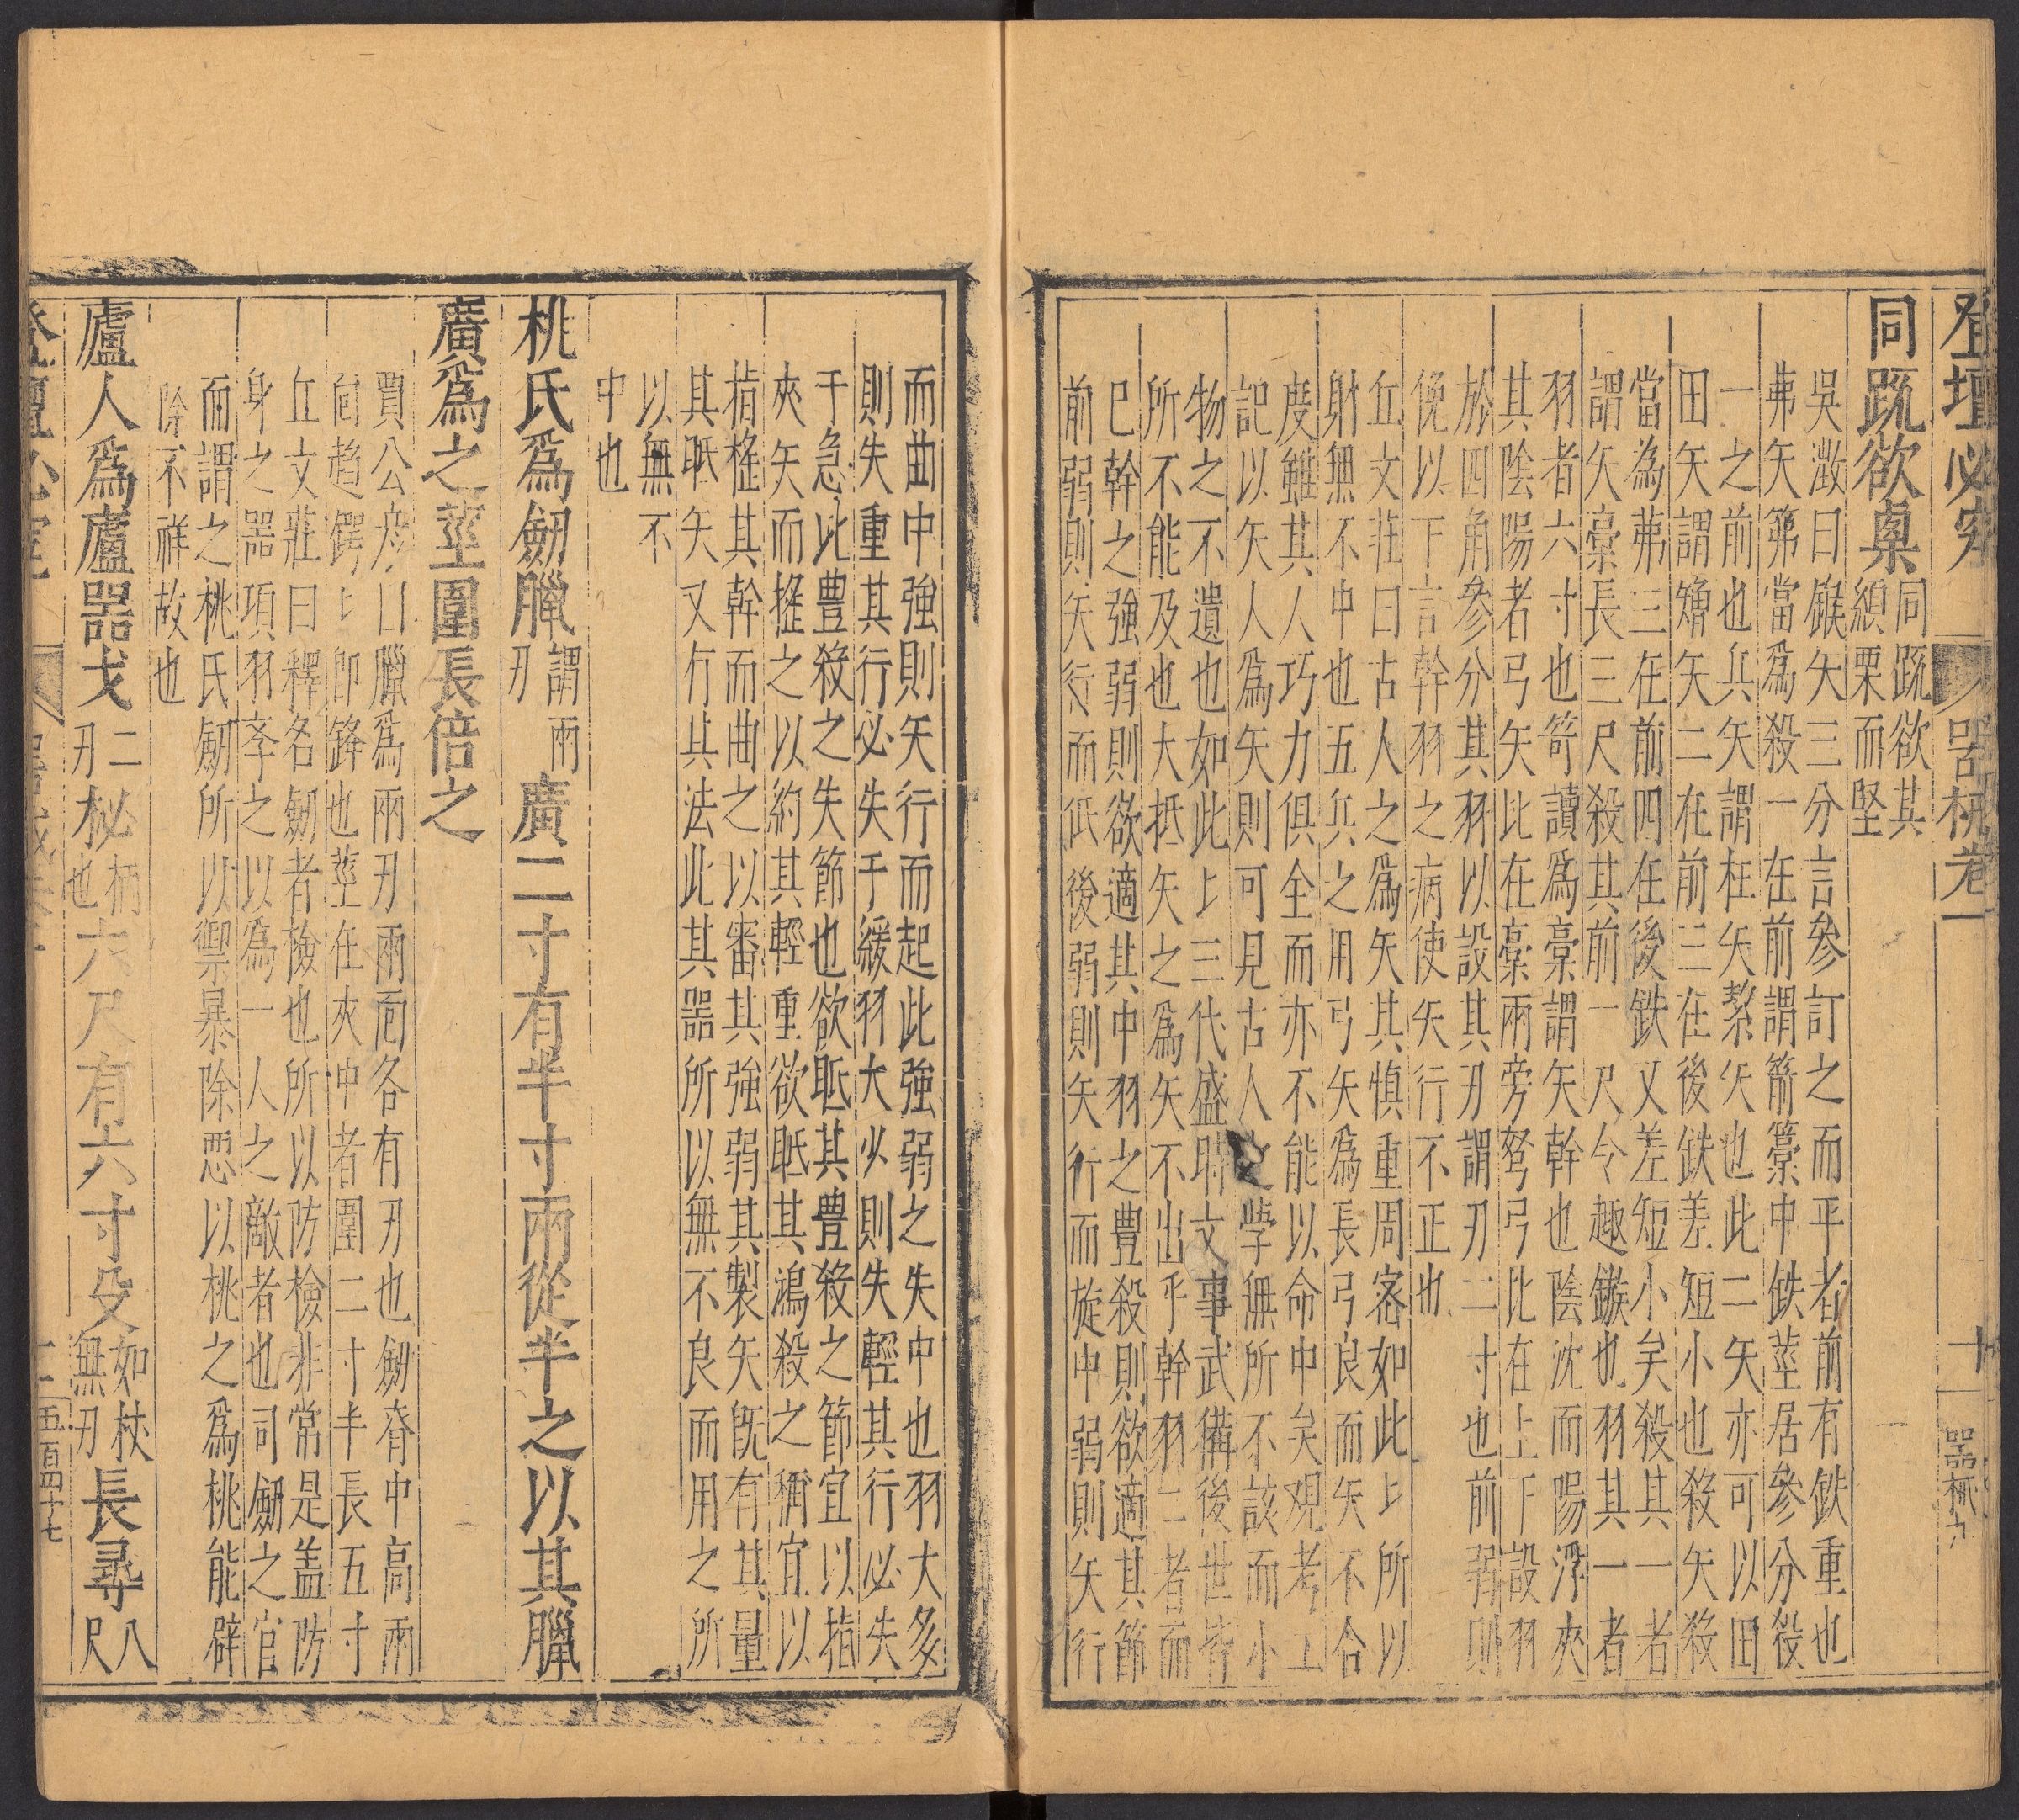 登壇必究 器械卷一 十 器械九
同疏欲㮚 同疏欲其
䌛栗而堅
吳澂曰鍭矢三分言參訂之而平者前有鉄重也
茀矢第當爲殺一在前謂箭槀中鉄莖居參分殺
一之前也兵矢謂枉矢絜矢也此二矢亦可以田
田矢謂矰矢二在前三在後鉄差短小也殺矢殺
當為茀三在前四在後鉄又差短小矣殺其一者
謂矢槀長三尺殺其前一尺令趣鏃也羽其一者
羽者六寸也笴讀爲槀謂矢幹也陰沈而陽浮夾
其陰陽者弓矢比在槀兩旁弩弓比在上下設羽
於四角參分其羽以設其刃謂刃二寸也前弱則
俛以下言幹羽之病使矢行不正也
丘文莊曰古人之爲矢其慎重周宻如此ヒ所以
射無不中也五兵之用弓矢爲長弓良而矢不合
度雖其人巧力俱全而亦不能以命中矣观考工
記以矢人爲矢則可見古人之學無所不該而小
物之不遺也如此ヒ三代盛時文事武備後世皆
所不能及也大抵矢之爲矢不出乎幹羽二者而
巳幹之強弱則欲適其中羽之豊殺則欲適其節
前弱則矢行而低後弱則矢行而旋中弱則矢行
而曲中強則矢行而起此強弱之失中也羽大多
則失重其行必失于緩羽大少則失輕其行必失
于急此豊殺之失節也欲眡其豊殺之節宜以指
夾矢而搖之以約其輕重欲眡其鴻殺之稱宜以
指搉其幹而曲之以審其強弱其製矢旣有其量
其眡矢又有其法此其器所以無不良而用之所
以無不
中也
桃氏爲劒臘 謂兩
刃 廣二寸有半寸兩從半之以其臘
廣爲之莖圍長倍之
賈公彥曰臘爲兩刃兩面各有刃也劒脊中高兩
面趋鍔ヒ卽鋒也莖在夾中者圍二寸半長五寸
丘文莊曰釋名劒者撿也所以防檢非常是盖防
身之器項羽季之以為一人之敵者也司劒之官
而謂之桃氏劒所以禦暴除惡以桃之爲桃能辟
除不祥故也
廬人爲廬器戈 二
刃 柲 柄
也 六尺有六寸殳 如杖
無刃 長尋 八
尺
十二 五百四十七